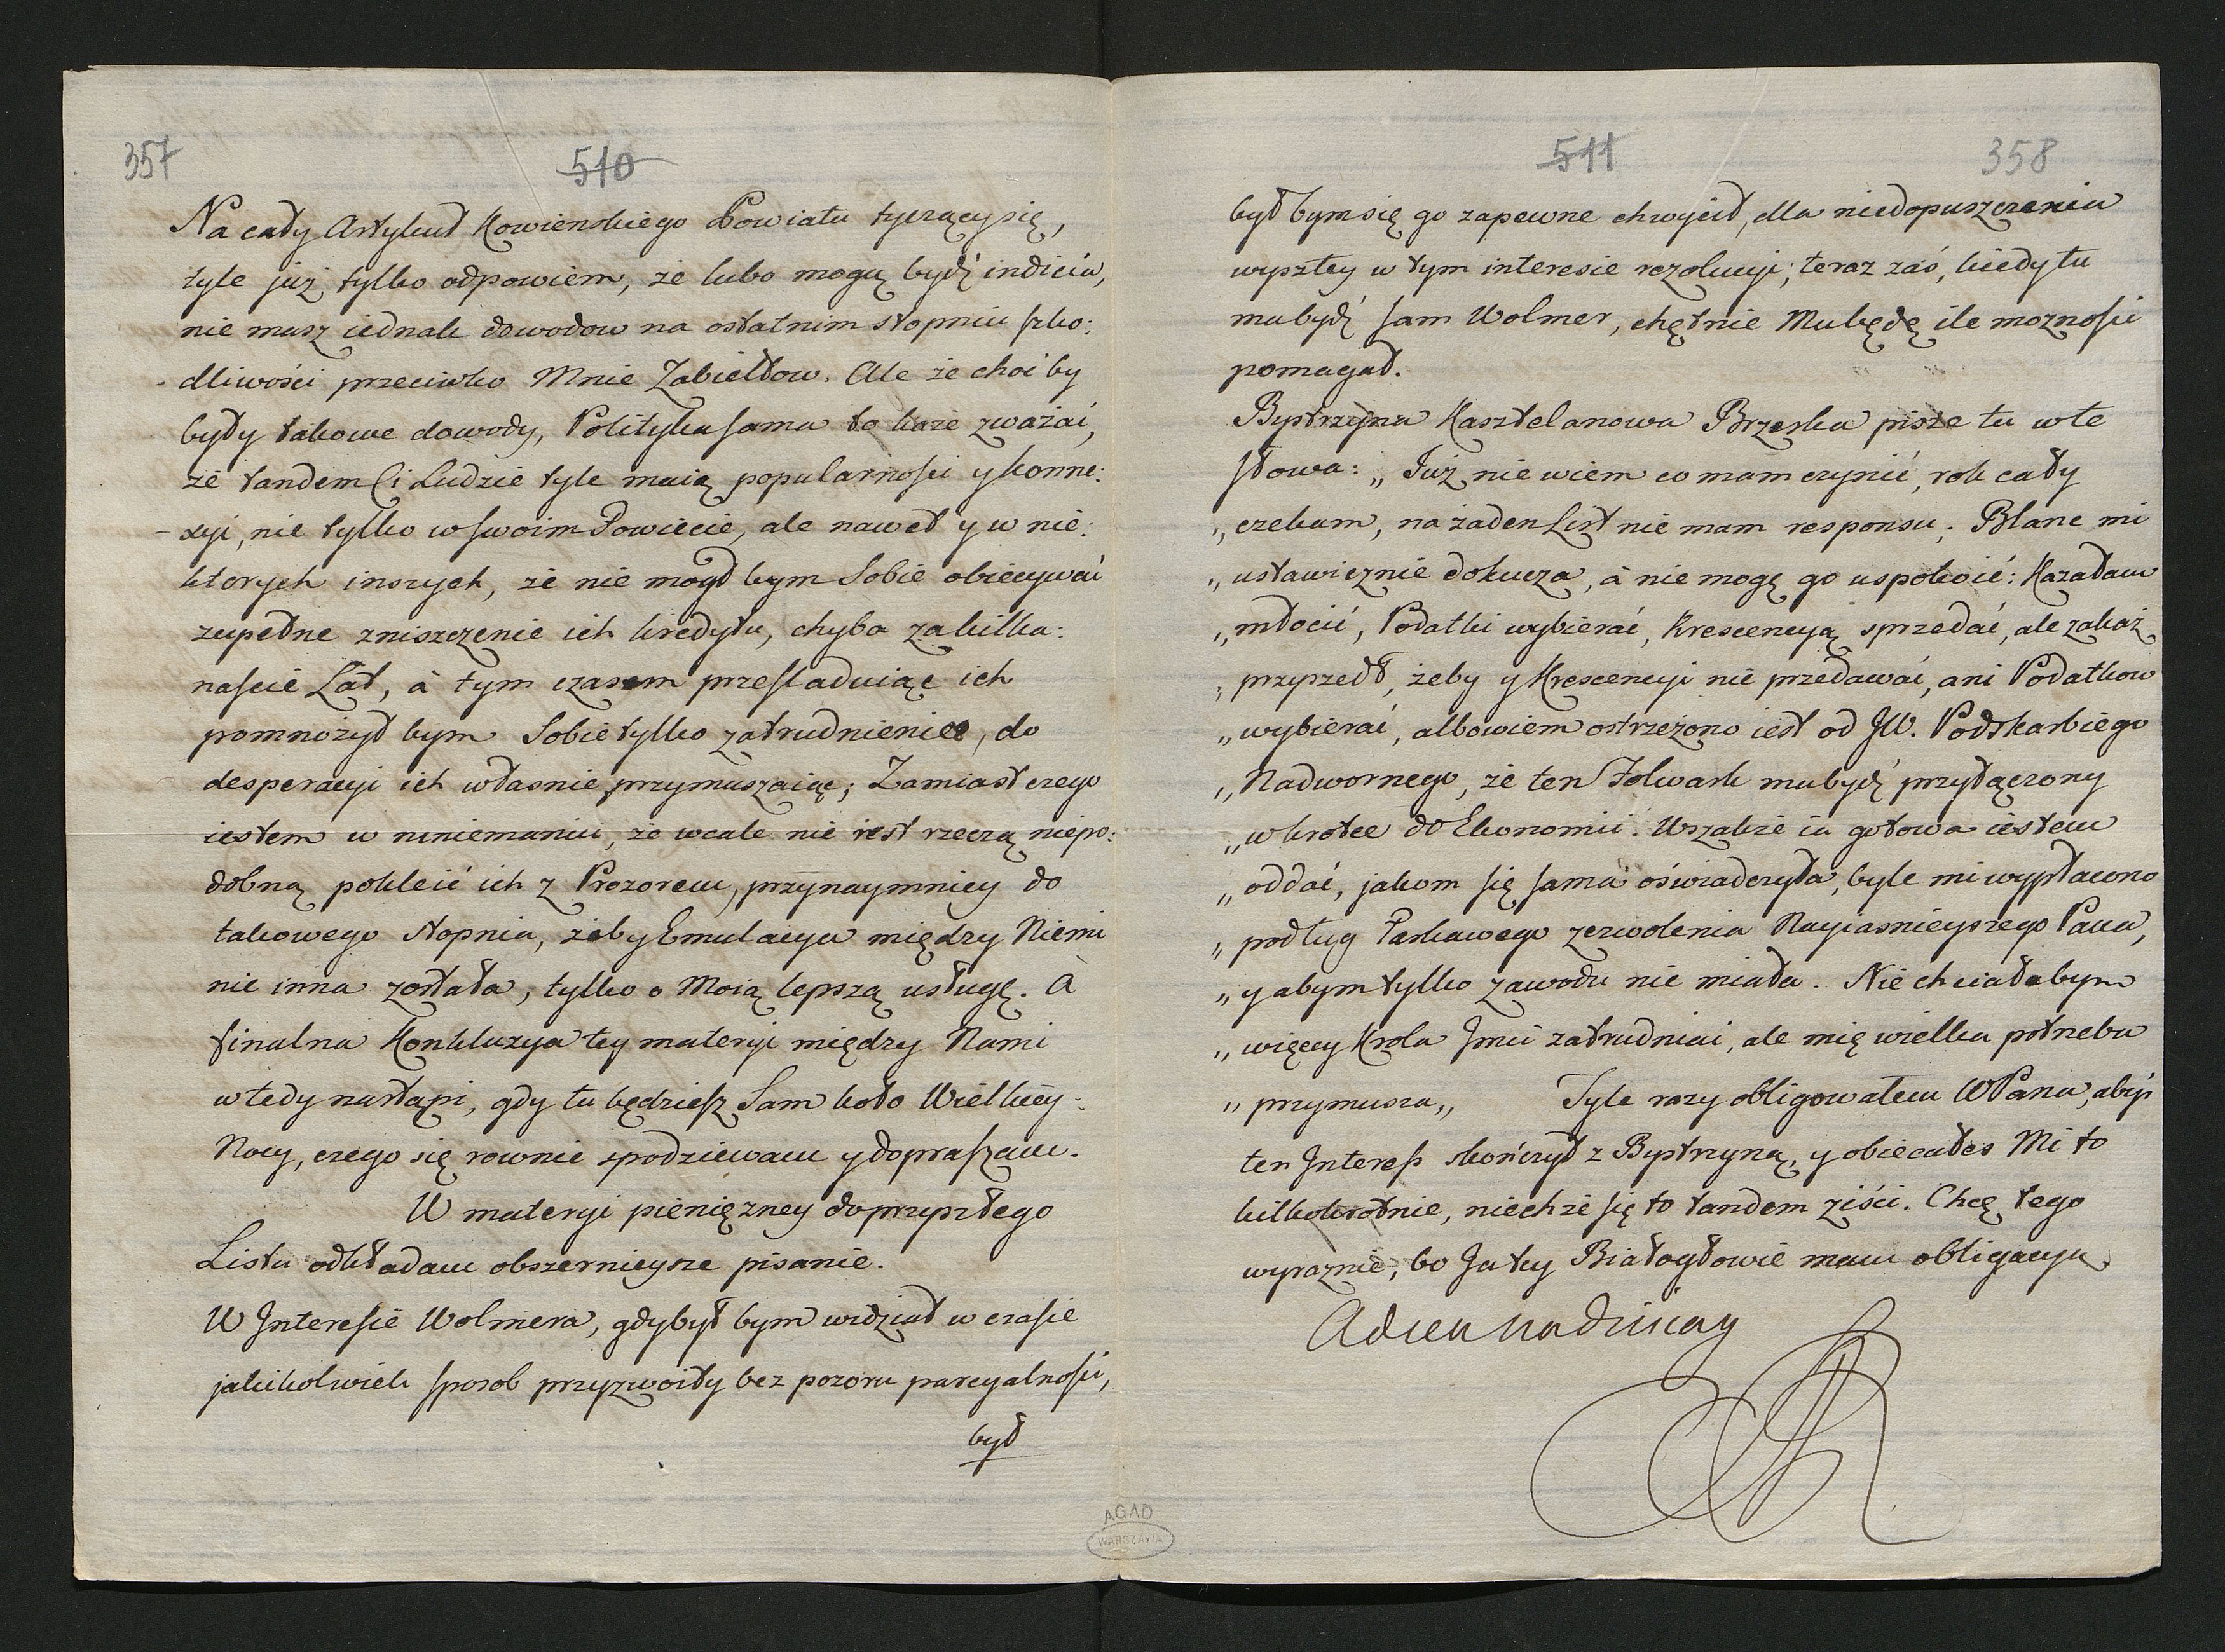 357
510
Na cały Artykuł Kowienskiego Powiatu tyczący się,
tyle już tylko odpowiem, że lubo mogą bydź indicia,
nie masz iednak dowodow na ostatnim stopniu szko:
dliwości przeciwko Mnie Zabiełłow. Ale że choćby
były takowe dowody, Polityka sama to każe zważać,
że tandem Ci Ludzie tyle maią popularności y konne:
xyi, nie tylko w swoim Powiecie, ale nawet y w nie:
ktorych inszych, że nie mogł bym Sobie obiecywać
zupełne zniszczenie ich kredytu, chyba za kilka:
naście Lat, à tym czasem prześladuiąc ich
pomnożył bym Sobie tylko zatrudnienie, do
desperacyi ich własnie przymuszaiąc; Zamiast czego
iestem w mniemaniu, że wcale nie iest rzeczą niepo:
dobną pokleić ich z Prozorem, przynaymniey do
takowego stopnia, żeby Emulacya między Niemi
nie inna została, tylko o Moią lepszą usługę. à
finalna Konkluzya tey materyi między Nami
wtedy nastąpi, gdy tu będziesz Sam koło Wielkiey-
Nocy, czego się rownie spodziewam y dopraszam.
W materyi pieniężney do przyszłego
Listu odkładam obszernieysze pisanie.
W Interesie Wolmera, gdybył bym widział w czasie
jakikolwiek sposob przyzwoity bez pozoru parcyalności,
był
511
358
był bym się go zapewne chwycił, dla niedopuszczenia
wyszłey w tym interesie rezolucyi; teraz zaś, kiedy tu
ma bydź sam Wolmer, chętnie Mu będę ile możności
pomagał.
Bystrzyna Kasztelanowa Brzeska pisze tu w te
słowa: „ Już nie wiem co mam czynić, rok cały
„ czekam, na żaden List nie mam responsu. Blanc mi
„ ustawicznie dokucza, à nie mogę go uspokoić: Kazałam
„ młocić, Podatki wybierać, Krescencyą sprzedać, ale zakaz
„ przyszedł, żeby y Krescencyi nie przedawać, ani Podatkow
„ wybierać, albowiem ostrzeżono iest od JW. Podskarbiego
„ Nadwornego, że ten Folwark ma bydź przyłączony
„ w krotce do Ekonomii. Wszakże ia gotowa iestem
„ oddać, jakom się sama oświadczyła, byle mi wypłacono
„ podług łaskawego zezwolenia Nayiasnieyszego Pana,
„ y abym tylko zawodu nie miała. Nie chciałabym
„ więcey Krola Jmci zatrudniać, ale mię wielka potrzeba
„ przymusza „ Tyle razy obligowałem WPana, abyś
ten Interess skończył z Bystrzyną, y obiecałeś Mi to
kilkokrotnie, niechże się to tandem ziści. Chcę tego
wyraznie, bo Ja tey Białogłowie mam obligacyą.
AGAD
WARSZAWA